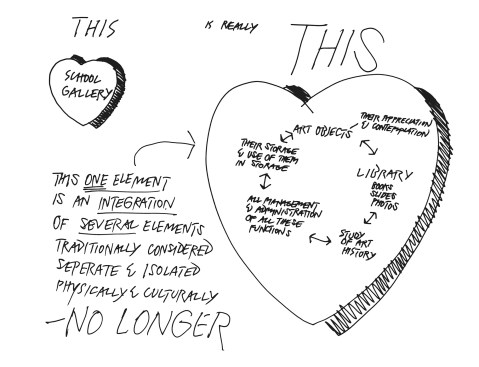 THIS
IS REALLY
THIS
SCHOOL
GALLERY
ART OBJECTS
THEIR APPRECIATION
& CONTEMPLATION
LIBRARY
BOOKS
SLIDES
PHOTOS
STUDY
OF ART
HISTORY
ALL MANAGEMENT
& ADMINISTRATION
OF ALL THESE
FUNCTIONS
THEIR STORAGE
& USE OF THEM
IN STORAGE
THIS ONE ELEMENT
IS AN INTEGRATION
OF SEVERAL ELEMENTS
TRADITIONALLY CONSIDERED
SEPERATE & ISOLATED
PHYSICALLY & CULTURALLY
—NO LONGER